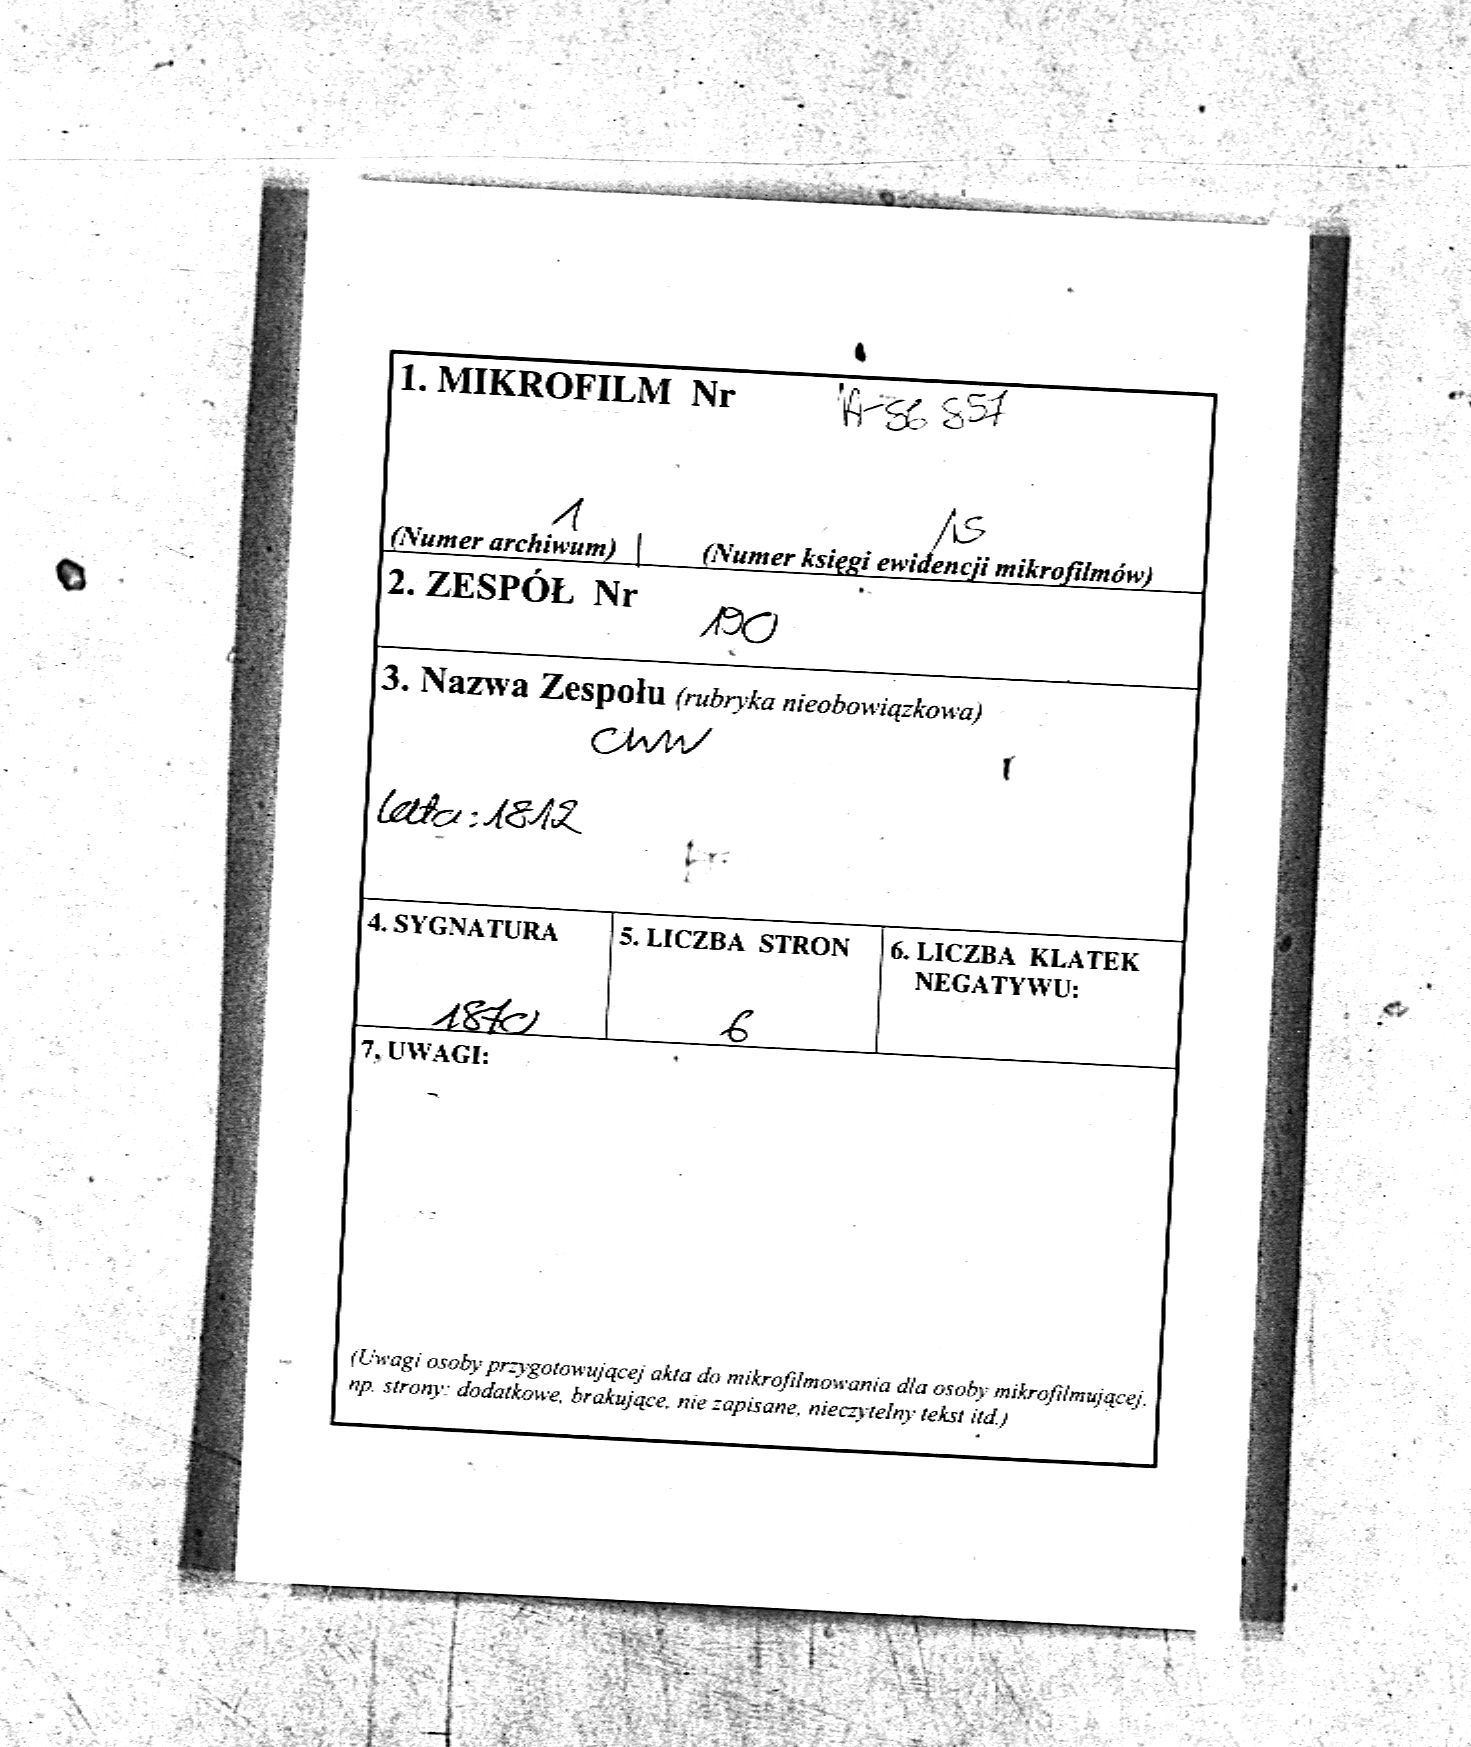 1. MIKROFILM Nr A-56 857
1 /15
(Numer archiwum) | (Numer księgi ewidencji mikrofilmów)
2. ZESPÓŁ Nr
190
3. Nazwa Zespołu (rubryka nieobowiązkowa)
CWW
lata: 1812
4. SYGNATURA 5. LICZBA STRON 6. LICZBA KLATEK
NEGATYWU:
1870 6
7, UWAGI:
(Uwagi osoby przygotowującej akta do mikrofilmowania dla osoby mikrofilmującej.
np. strony: dodatkowe, brakujące, nie zapisane, nieczytelny tekst itd.)